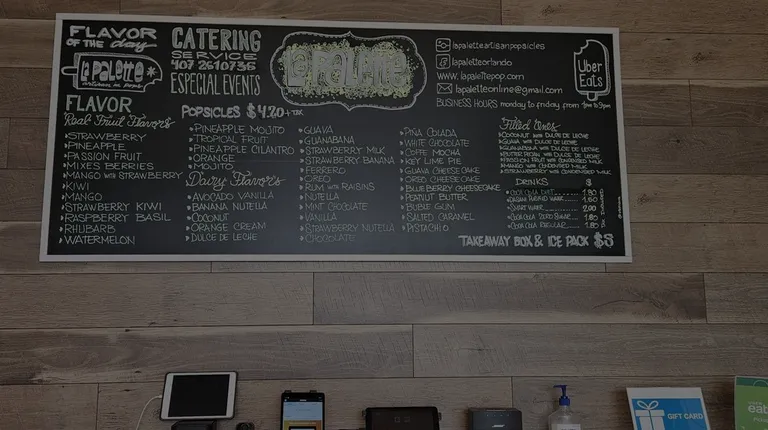 FLAVOR
OF THE day
La PALETTE
artisan ice pops
FLAVOR
Real Fruit Flavors
STRAWBERRY
PINEAPPLE
PASSION FRUIT
MIXES BERRIES
MANGO WITH STRAWBERRY
KIWI
MANGO
STRAWBERRY KIWI
RASPBERRY BASIL
RHUBARB
WATERMELON
CATERING
SERVICE
407 2610736
ESPECIAL EVENTS
POPSICLES $4.20 + TAX
PINEAPPLE MOJITO
TROPICAL FRUIT
PINEAPPLE CILANTRO
ORANGE
MOJITO
Dairy Flavors
AVOCADO VANILLA
BANANA NUTELLA
COCONUT
ORANGE CREAM
DULCE DE LECHE
La PALETTE
GUAVA
GUANABANA
STRAWBERRY MILK
STRAWBERRY BANANA
FERRERO
OREO
RUM WITH RAISINS
NUTELLA
MINT CHOCOLATE
VANILLA
STRAWBERRY NUTELLA
CHOCOLATE
PIÑA COLADA
WHITE CHOCOLATE
COFFE MOCHA
KEY LIME PIE
GUAVA CHEESECAKE
OREO CHEESECAKE
BLUEBERRY CHEESECAKE
PEANUT BUTTER
BUBLE GUM
SALTED CARAMEL
PISTACHIO
lapaletteartisanpopsicles
lapaletteorlando
www.lapalettepop.com
lapaletteonline@gmail.com
BUSINESS HOURS monday to friday from
Uber
Eats
Filled Ones
COCONUT WITH DULCE DE LECHE
GUAVA WITH DULCE DE LECHE
GUANABANA WITH DULCE DE LECHE
BUTTER PECAN WITH DULCE DE LECHE
PASSION FRUIT WITH CONDENSED MILK
MANGO WITH CONDENSED MILK
STRAWBERRY WITH CONDENSED MILK
DRINKS $
COCA COLA DIET 1.80
WATER 1.60
WATER 2.00
COCA COLA ZERO SUGAR 1.80
COCA COLA REGULAR 1.80
TAKEAWAY BOX & ICE PACK $3
GIFT CARD
eat